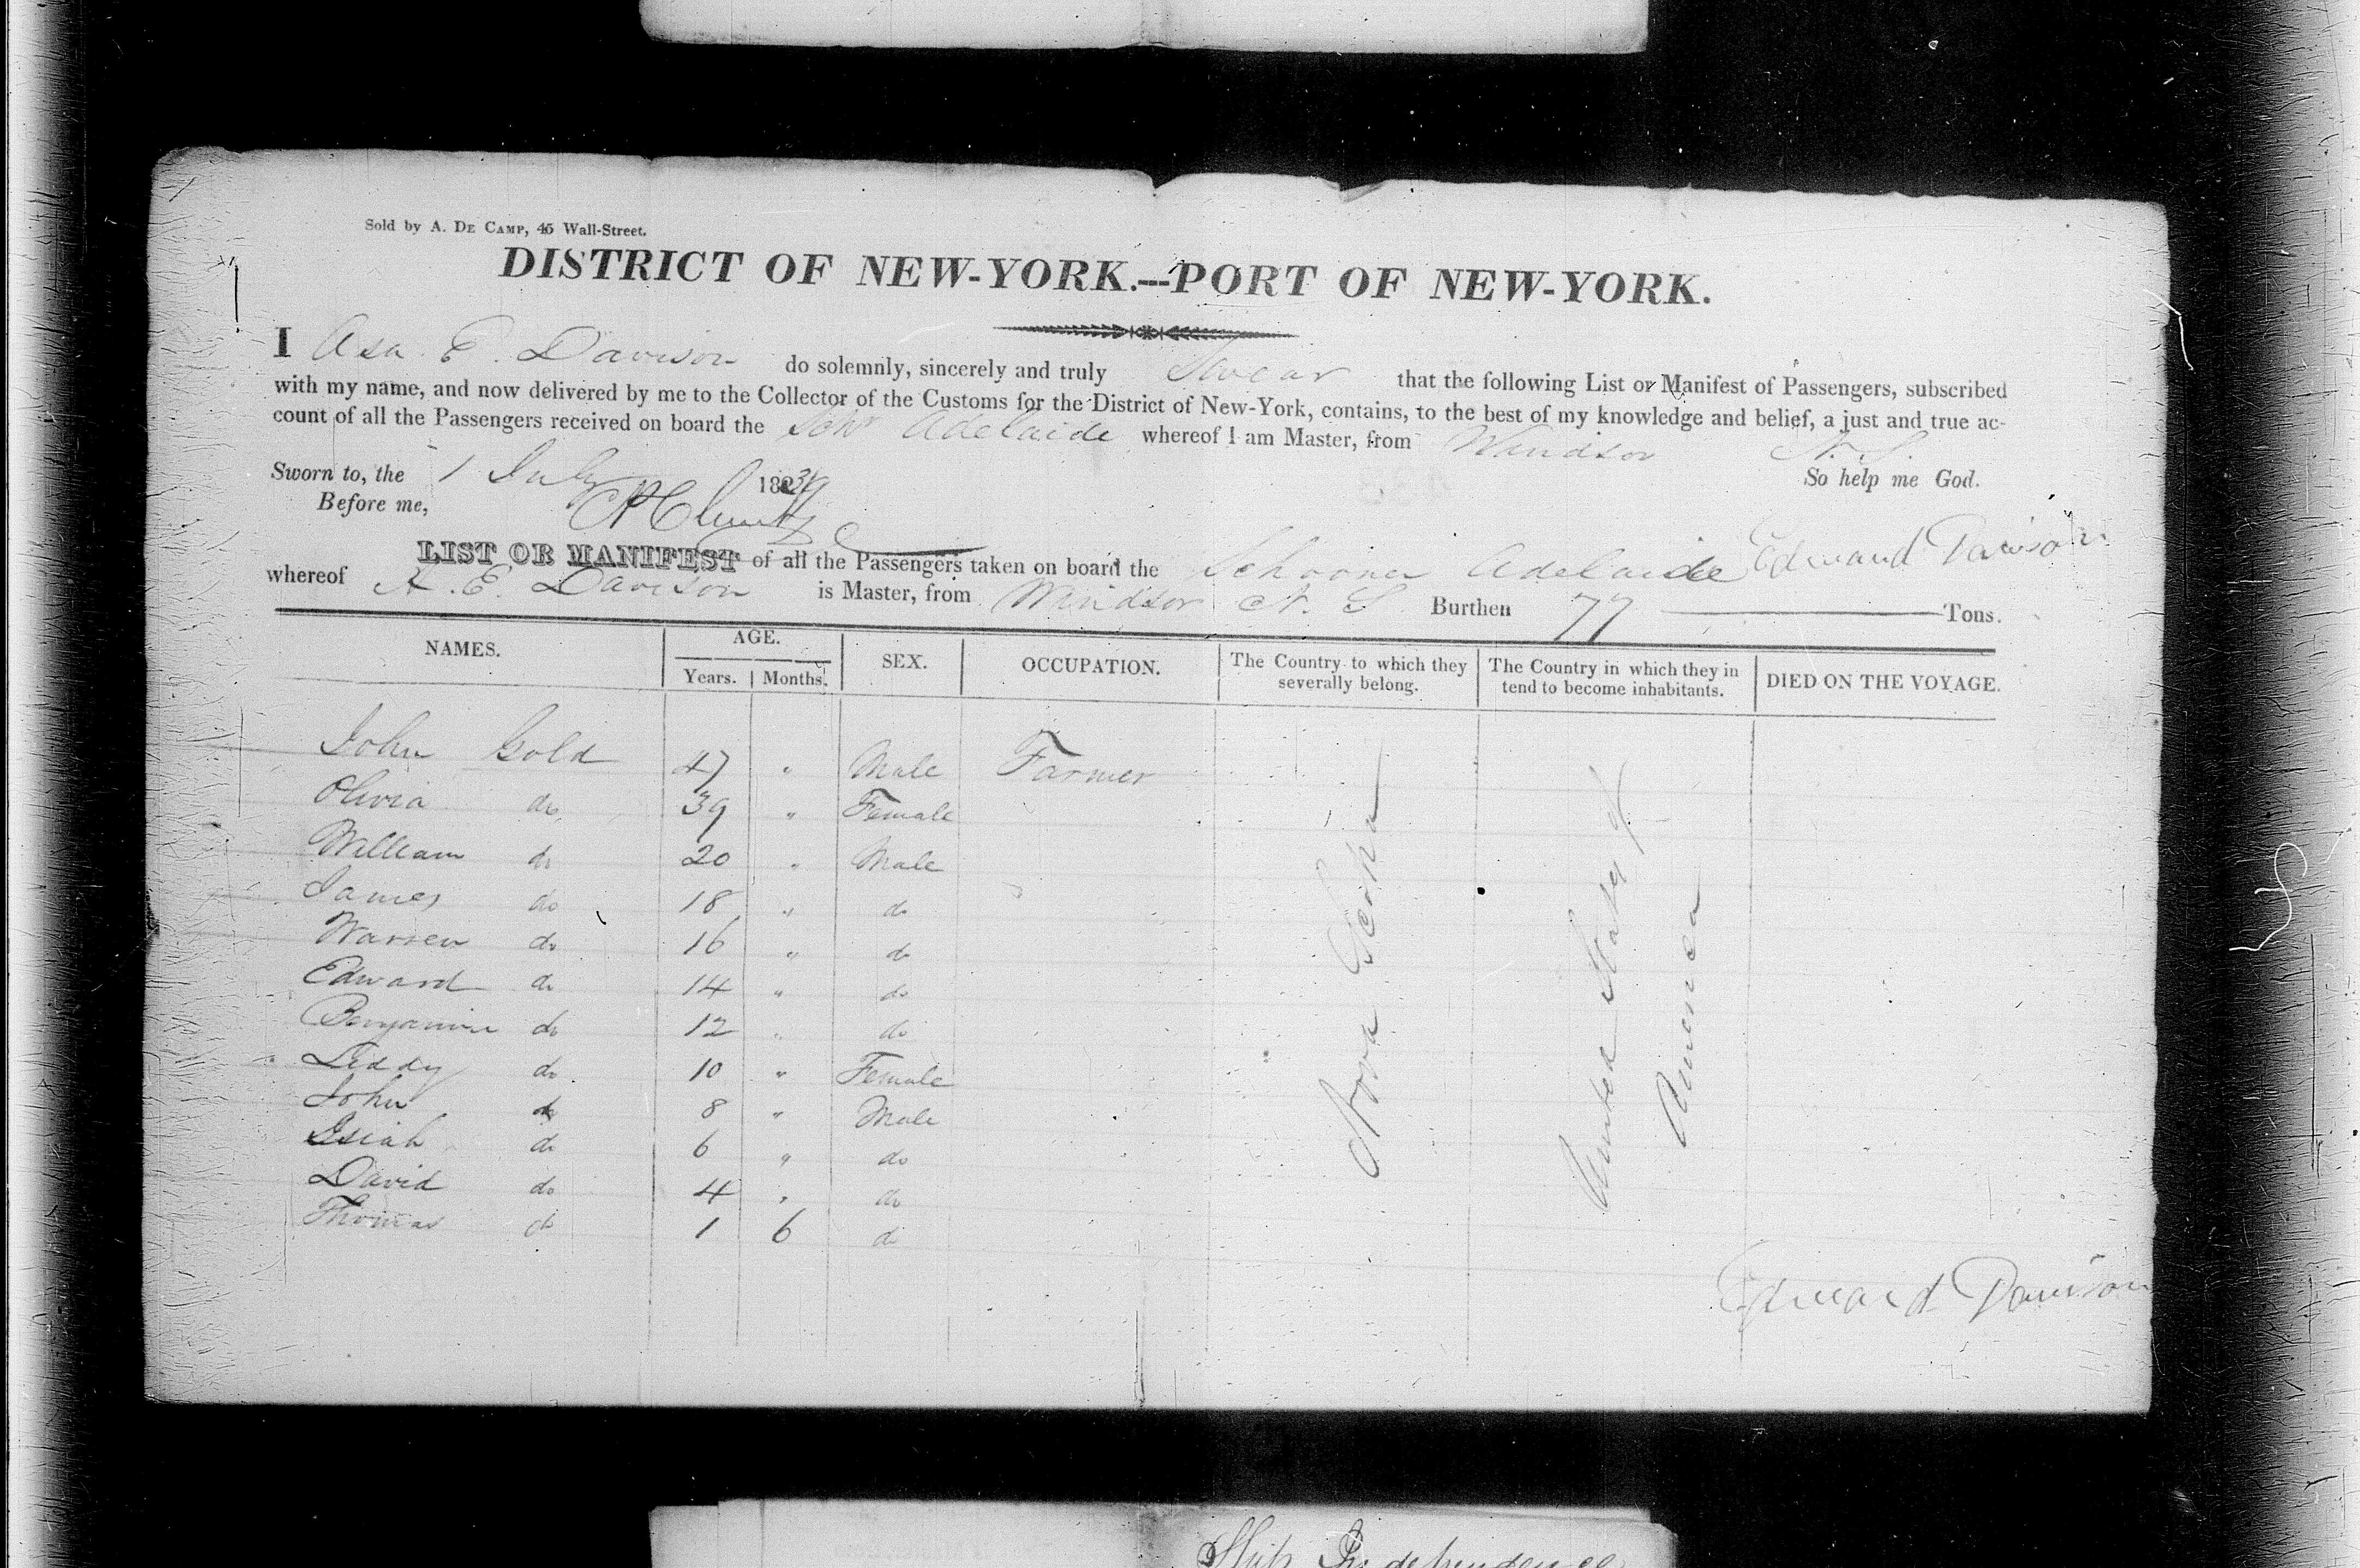 Sold by A. DE CAMP, 45 Wall-Street.
DISTRICT OF NEW-YORK.---PORT OF NEW-YORK.
I Asa E. Davison do solemnly, sincerely and truly Swear that the following List or Manifest of Passengers, subscribed
with my name, and now delivered by me to the Collector of the Customs for the District of New-York, contains, to the best of my knowledge and belief, a just and true ac-
count of all the Passengers received on board the Schr Adelaide whereof I am Master, from Windsor N. S.
Sworn to, the 1 July 1839 So help me God.
Before me,
Edward Davison
LIST OR MANIFEST of all the Passengers taken on board the Schooner Adelaide
whereof A. E. Davison is Master, from Windsor N. S Burthen 77 Tons.
NAMES. AGE. SEX. OCCUPATION. The Country to which they severally belong. The Country in which they in tend to become inhabitants. DIED ON THE VOYAGE.
Years. Months.
John Gold 47 " Male Farmer
Olivia do 39 " Female
William do 20 " Male
James do 18 " do
Warren do 16 " do
Edward do 14 " do
Benjamin do 12 " do
Liddy do 10 " Female
John do 8 " Male
Isiah do 6 " do
David do 4 " do
Thomas do 1 6 do
Nova Scotia
United States of
America
Edward Davison
Ship Independence